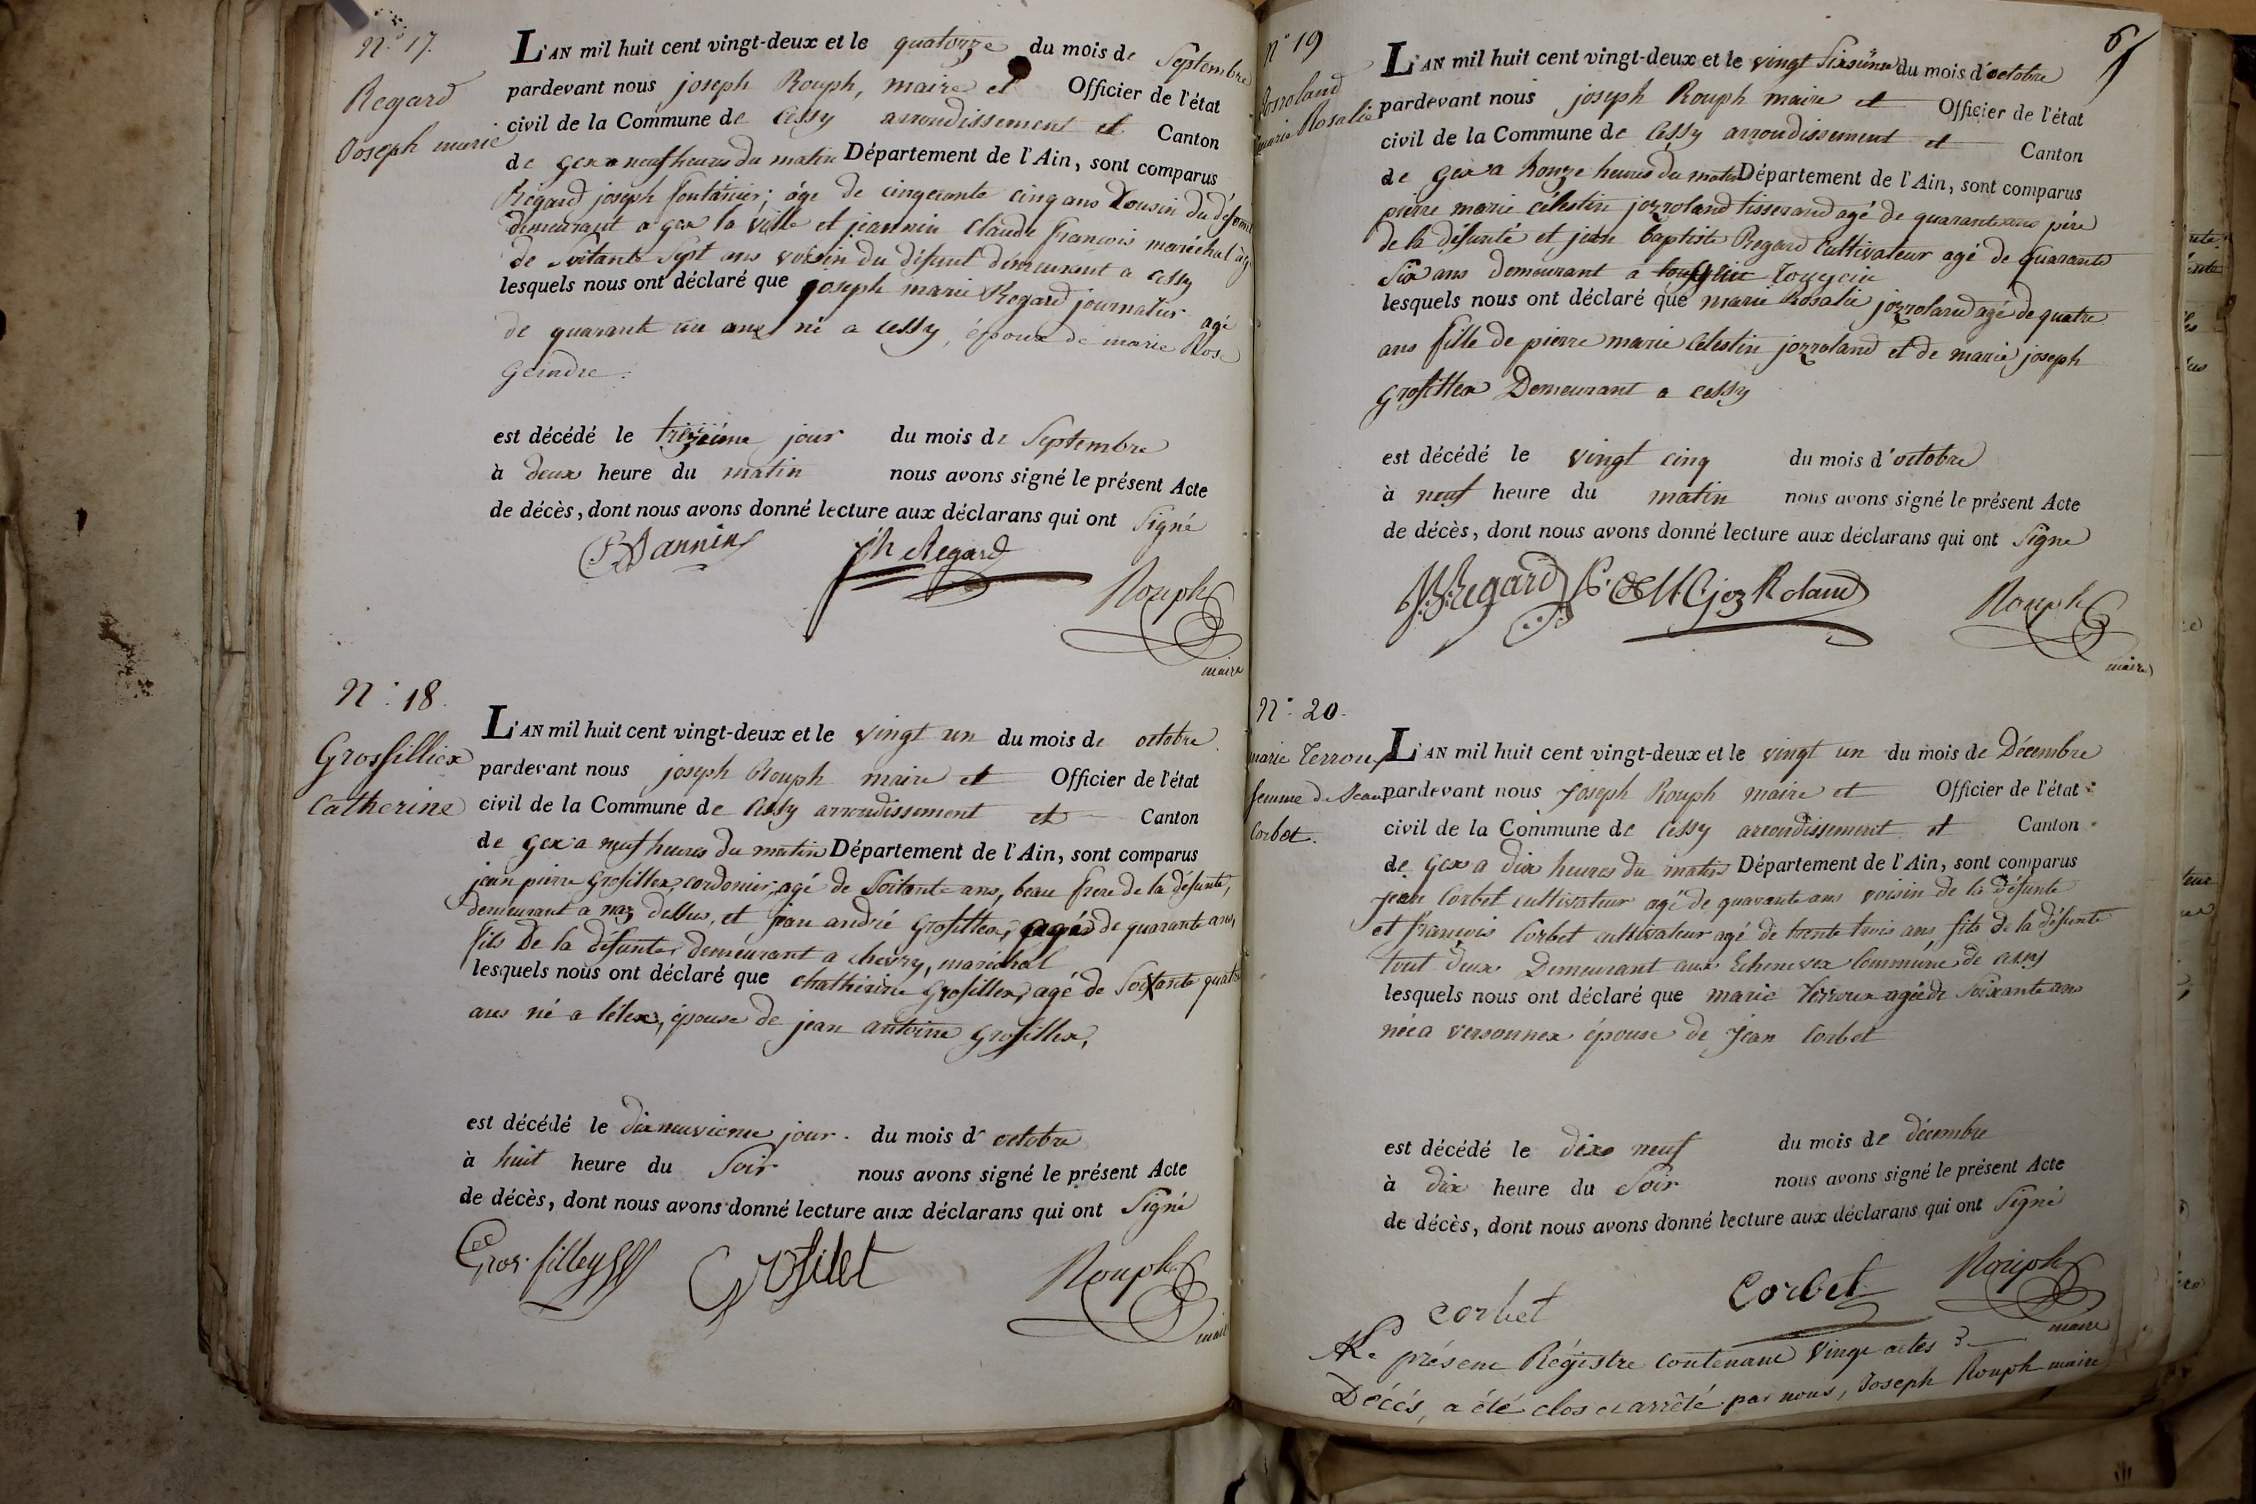 N.° 17.
Regard
Joseph marie
L'AN mil huit cent vingt-deux et le quatorze du mois de Septembre
pardevant nous joseph Rouph, maire et Officier de l'état
civil de la Commune de Cessy arroudissement et Canton
de gex a neuf heures du matin Département de l'Ain, sont comparus
Regard joseph fontanier; âge de cinquante cinq ans Cousin du défunt
demeurant a gex la ville et jeannin Claude françois maréchal âgé
de Soitante Sept ans voisin du défunt demeurant a Cessy
lesquels nous ont déclaré que joseph marie Regard journalier agé
de quarante un ans né a Cessy, époux de marie Rose
Geindre.
est décédé le treizième jour du mois de Septembre
à deux heure du matin nous avons signé le présent Acte
de décès, dont nous avons donné lecture aux déclarans qui ont Signé
Jh Regard
Rouph
maire
N.° 18.
Grossilliex
Catherine
L'AN mil huit cent vingt-deux et le vingt un du mois de octobre
pardevant nous joseph Rouph maire et Officier de l'état
civil de la Commune de Cessy arroudissement et Canton
de gex a neuf heures du matin Département de l'Ain, sont comparus
jean pierre Grosillex, cordonier, agé de Soitante ans, beau frere de la défunte,
demeurant a naz dessus, et jean andré Grosillex, agé de quarante ans,
fils De la défunte, demeurant a chevry, maréchal
lesquels nous ont déclaré que chathérine Grosillex, agé de Soixante quatre
ans né a lélex, épouse de jean antoine Grosillex,
est décédé le dixneuvieme jour. du mois d' octobre
à huit heure du Soir nous avons signé le présent Acte
de décès, dont nous avons donné lecture aux déclarans qui ont Signé
Grosilet
Rouph
maire
N° 19
Jozroland
marie Rosalie
6
L'AN mil huit cent vingt-deux et le vingt Sixième du mois d'octobre
pardevant nous joseph Rouph maire et Officier de l'état
civil de la Commune de Cessy arroudissement et Canton
de gex a honze heures du matin Département de l'Ain, sont comparus
pierre marie célestin jozroland tisserand agé de quarante ans père
de la défunte et jean baptiste Regard Cultivateur agé de quarante
Six ans demeurant a tougein
lesquels nous ont déclaré que marie Rosalie jozroland agé de quatre
ans fille de pierre marie Célestin jozroland et de marie joseph
Grosillex Demeurant a Cessy
est décédé le vingt cinq du mois d'octobre
à neuf heure du matin nous avons signé le présent Acte
de décès, dont nous avons donné lecture aux déclarans qui ont Signé
Regard
jozRoland
Rouph
maire
N.° 20.
marie Terroux
femme de Jean
Corbet.
L'AN mil huit cent vingt-deux et le vingt un du mois de Décembre
pardevant nous Joseph Rouph maire et Officier de l'état
civil de la Commune de Cessy arrondissement et Canton
de Gex a dix heures du matin Département de l'Ain, sont comparus
Jean Corbet cultivateur agé de quarante ans voisin de la défunte
et françois Corbet cultivateur agé de trente trois ans fils de la défunte
tout deux Demeurant aux Echenevex Commune de Cessy
lesquels nous ont déclaré que marie Terroux agée de Soixante ans
née a versonnex épouse de Jean Corbet
est décédé le dix neuf du mois de décembre
à dix heure du Soir nous avons signé le présent Acte
de décès, dont nous avons donné lecture aux déclarans qui ont Signé
corbet
Corbet
Rouph
maire
Le présent Régistre contenant vingt actes de
Décés, a été clos et arrêté par nous, Joseph Rouph maire